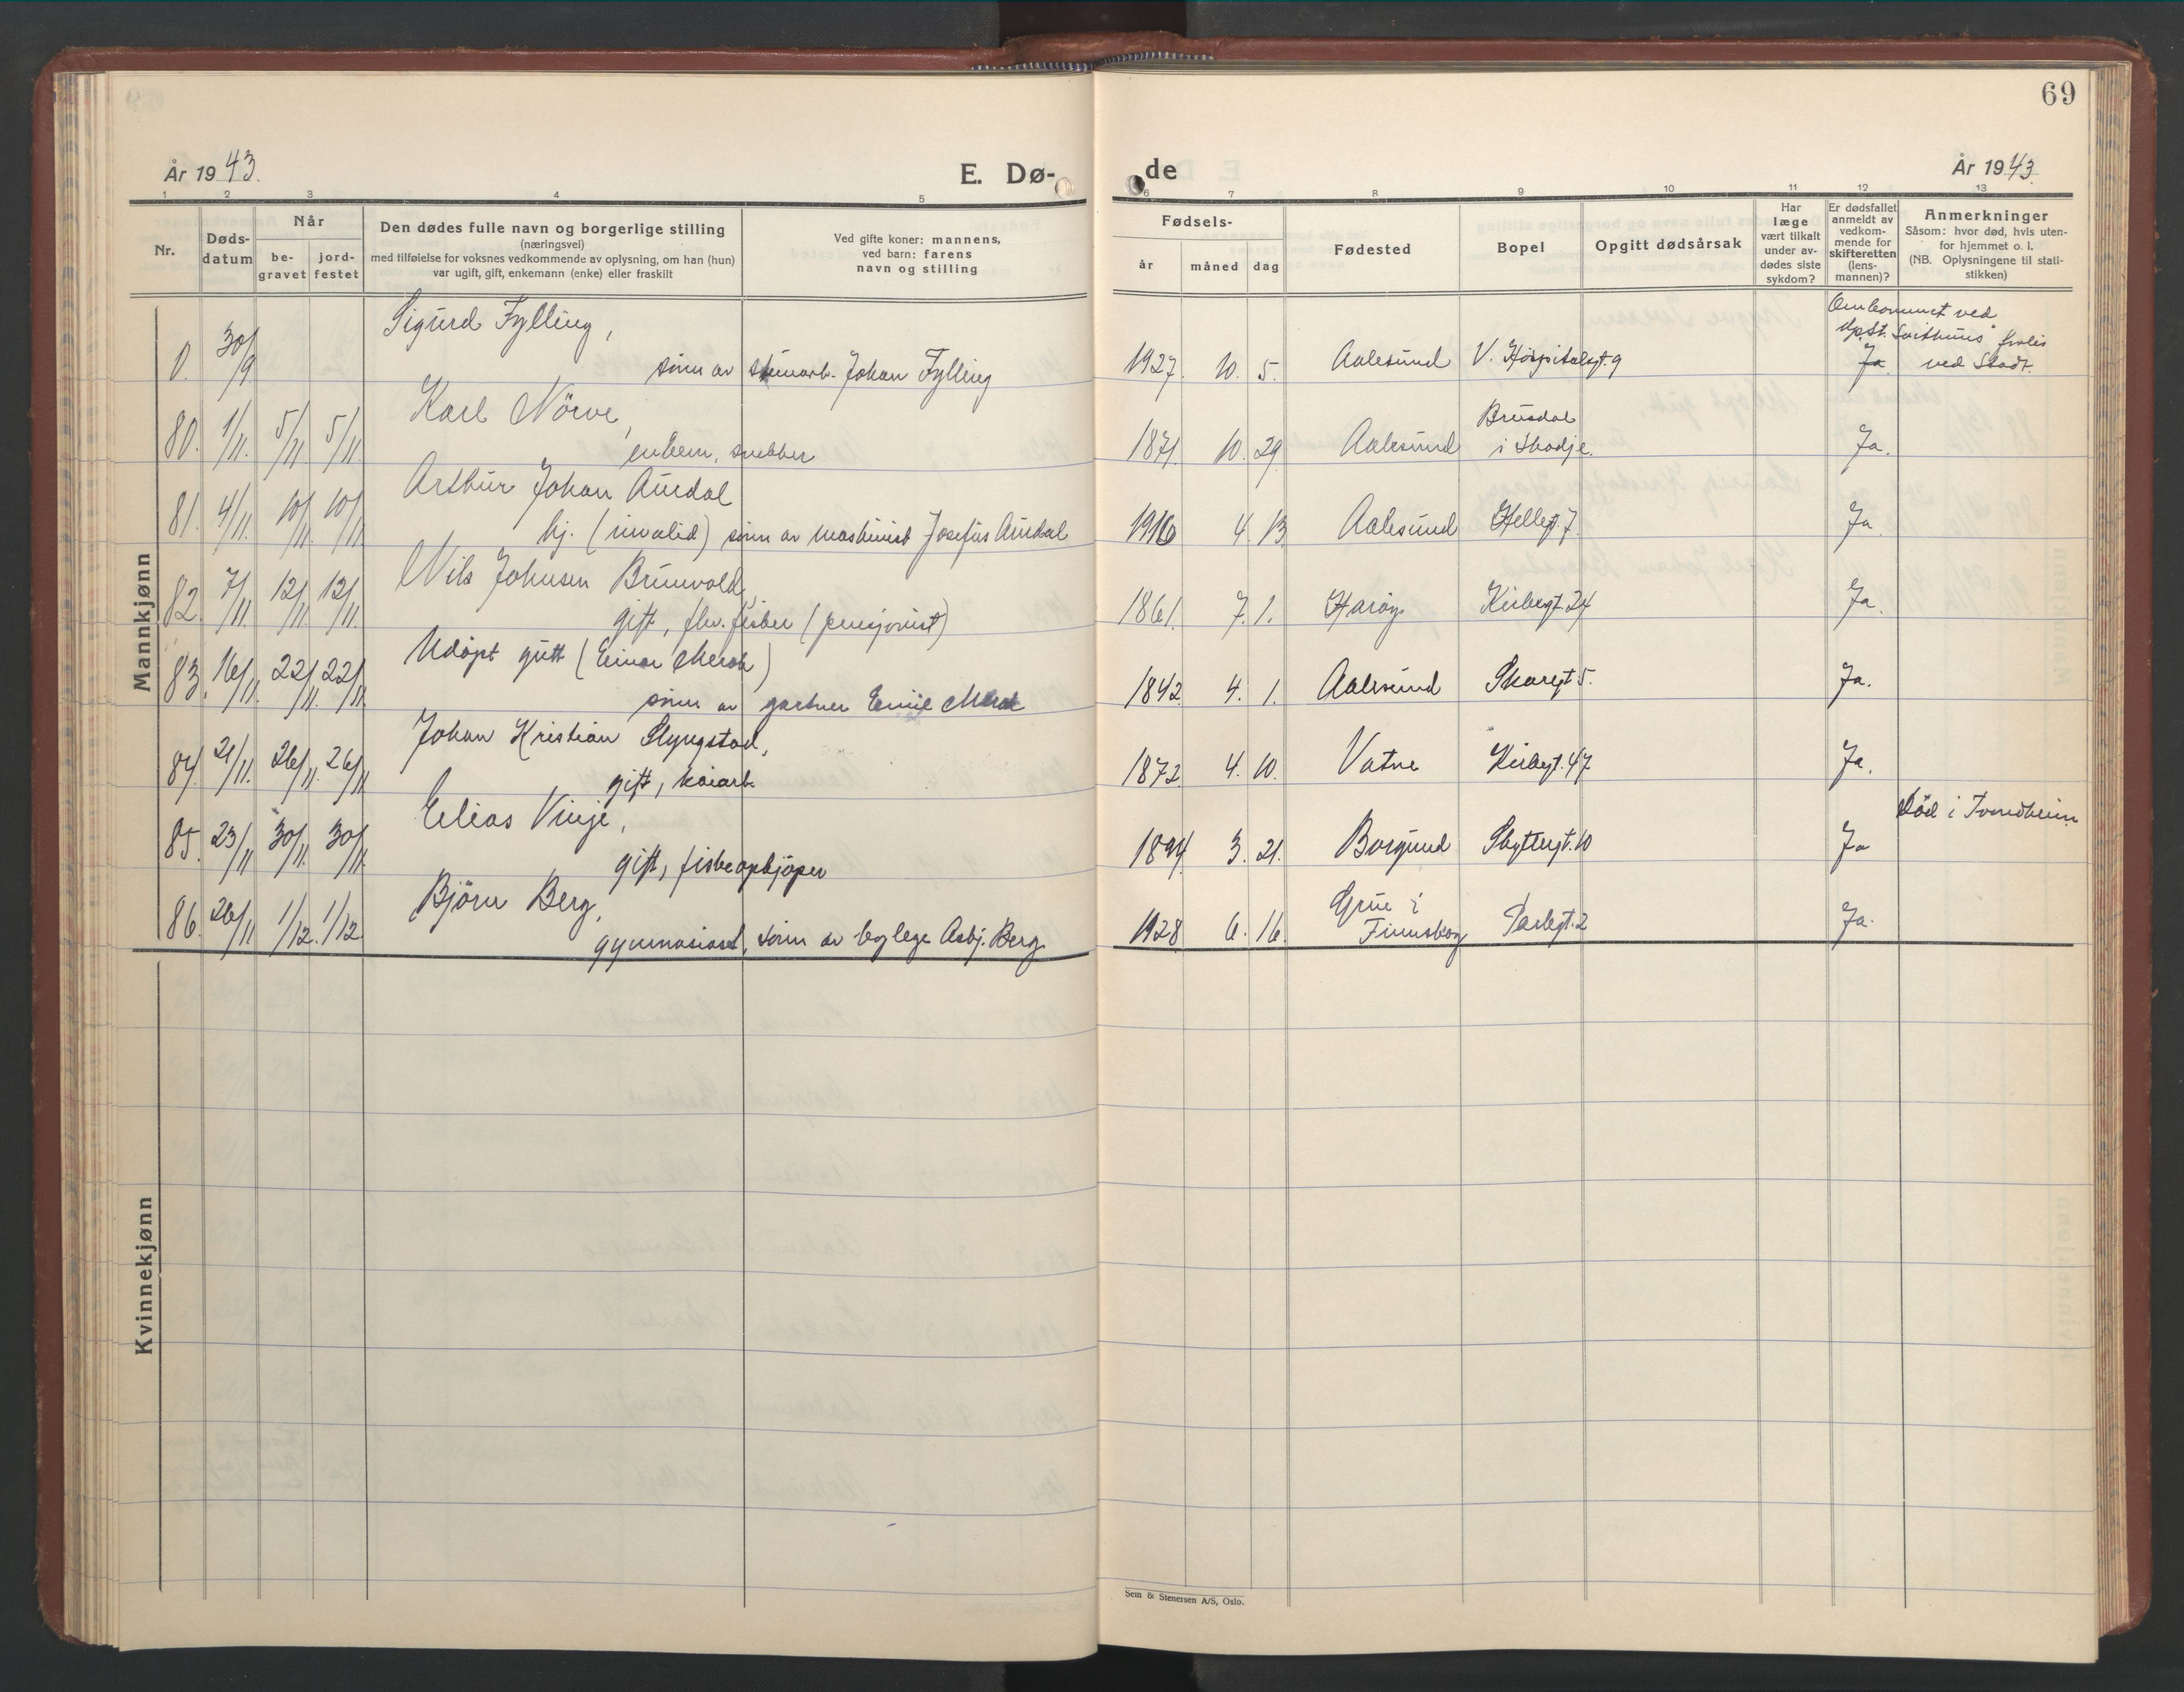 69
År 1943.
E. Dø-
de
År 1943.
1 2 3 4 5
6 7 8 9 10 11 12 13
Nr.
Døds-
datum
Når
be-
gravet
jord-
festet
Den dødes fulle navn og borgerlige stilling
(næringsvei)
med tilføielse for voksnes vedkommende av oplysning, om han (hun)
var ugift, gift, enkemann (enke) eller fraskilt
Ved gifte koner: mannens,
ved barn: farens
navn og stilling
Fødsels-
år måned dag
Fødested
Bopel
Opgitt dødsårsak
Har
læge
vært tilkalt
under av-
dødes siste
sykdom?
Er dødsfallet
anmeldt av
vedkom-
mende for
skifteretten
(lens-
mannen)?
Anmerkninger
Såsom: hvor død, hvis uten-
for hjemmet o. l.
(NB. Oplysningene til stati-
stikken)
Mannkjønn
Sigurd Fylling,
Omkommet ved
D/S "St. Svithuns" forlis
0. 30/9 sönn av stuearb. Johan Fylling 1927. 10. 5. Aalesund V. Hospitalsgt. 9 Ja. ved Stadt.
Karl Nörve,
Brusdal
80. 1/11. 5/11. 5/11. enkem. snekker 1871. 10. 29. Aalesund i Skodje. Ja.
Arthur Johan Aurdal
81. 4/11. 10/11. 10/11. hj. (invalid) sönn av maskinist Josefus Aurdal 1916 4. 13. Aalesund Hellegt. 7. Ja.
Nils Johnsen Brunvold,
82. 7/11. 12/11. 12/11. gift, fhv. fisker (pensjonist) 1861. 7. 1. Haröy Kirkegt. 24 Ja.
Udöpt gutt (Einar Merok)
83. 16/11. 22/11. 22/11. sönn av gartner Emil Merok 1842. 4. 1. Aalesund Skaregt. 5. Ja.
Johan Kristian Slyngstad,
84. 21/11. 26/11. 26/11 gift, kaiarb. 1872. 4. 10. Vatne Kirkegt. 47 Ja.
Elias Vinje,
Död i Trondheim
85. 23/11 30/11. 30/11. gift, fiskeopkjöper 1894. 3. 21. Borgund Skyttergt. 10 Ja
Björn Berg,
Grue i
86. 26/11 1/12. 1/12. gymnasiast, sönn av lege Asbj. Berg. 1928. 6. 16. Finnskog Parkgt. 2 Ja.
Kvinnekjønn
Sem & Stenersen A/S, Oslo.